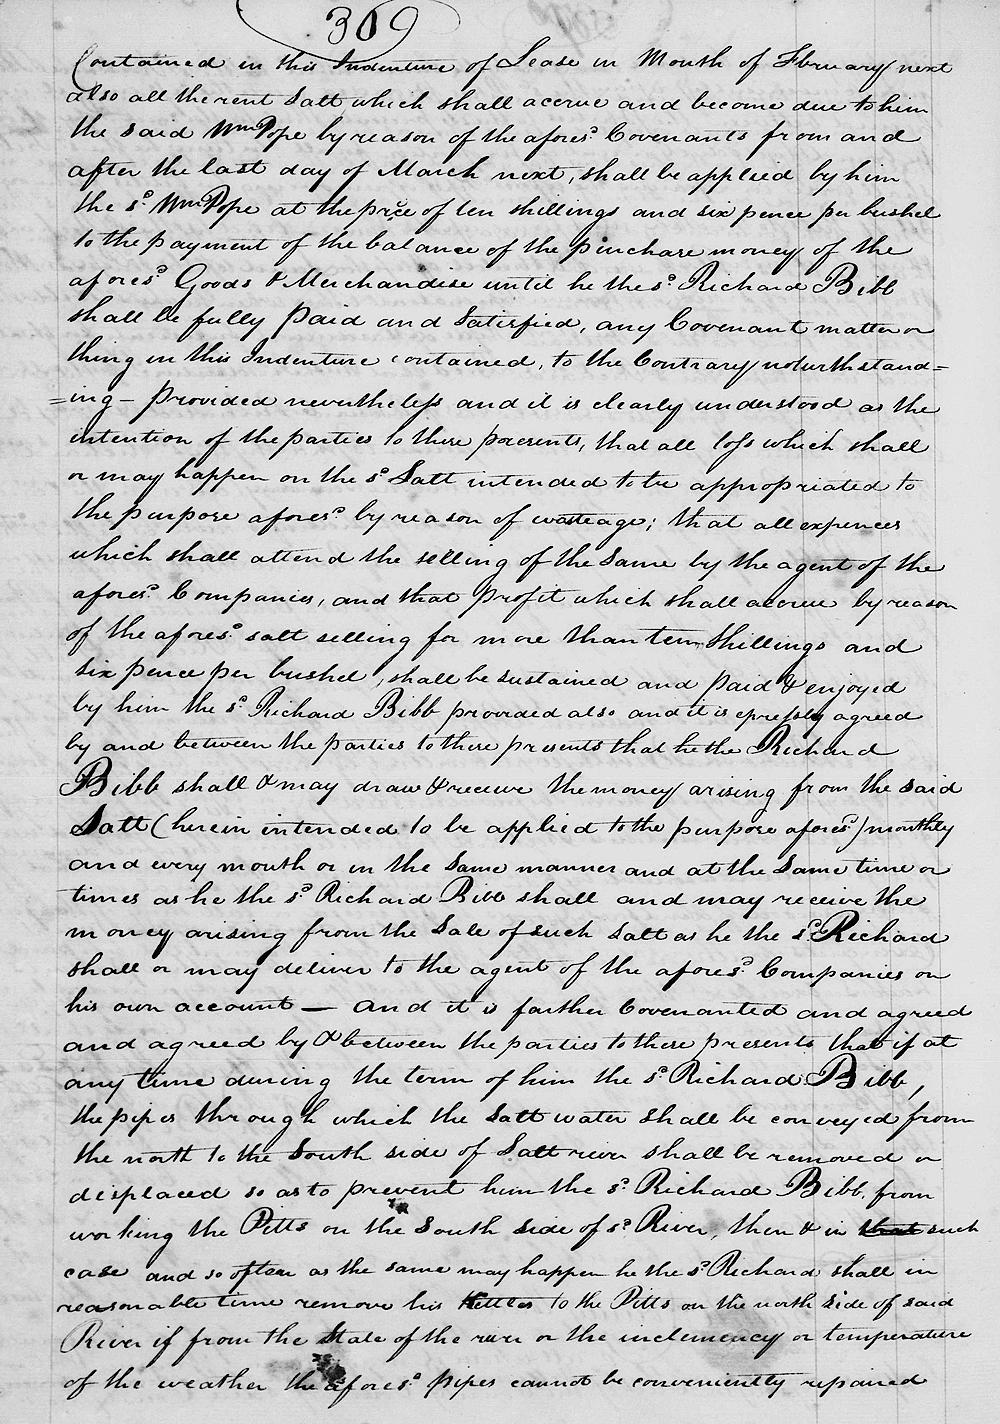 309
Contained in this Indenture of Lease in Month of Fbruary next
also all the rent Salt which shall accrue and become due to him
the said Wm Pope by reason of the afores.d Covenants from and
after the last day of March next, shall be applied by him
the s.d Wm Pope at the price of ten shillings and six pence per bushel
to the payment of the balance of the purchase money of the
afores.d Goods & Merchandise until he the s.d Richard Bibb
shall be fully Paid and Satisfied, any Covenant matter or
thing in this Indenture contained, to the Contrary notwithstand=
=ing – provided nevertheless and it is clearly understood as the
intention of the parties to these presents, that all loss which shall
or may happen on the s.d Salt intended to be appropriated to
the purpose afores.d by reason of wasteage; that all expences
which shall attend the selling of the Same by the agent of the
afores.d Companies, and that profit which shall accrue by reason
of the afores.d salt selling for more than ten Shillings and
six pence per bushel, shall be sustained and paid & enjoyed
by him the s.d Richard Bibb provided also and it is epressly agreed
by and between the parties to these presents that he the Richard
Bibb shall & may draw & receive the money arising from the said
Salt (herein intended to be applied to the purpose afores.d) monthly
and every month or in the Same manner and at the Same time or
times as he the s.d Richard Bibb shall and may receive the
money arising from the Sale of such Salt as he the s.d Richard
shall or may deliver to the agent of the afores.d Companies on
his own account — And it is farther Covenanted and agreed
and agreed by & between the parties to these presents that if at
any time during the term of him the s.d Richard Bibb,
the pipes through which the Salt water shall be conveyed from
the north to the South side of Salt river shall be removed or
displaced so as to prevent him the s.d Richard Bibb, from
working the Pitts on the South Side of s.d River, then & in that such
case and so often as the same may happen he the s.d Richard shall in
reasonable time remove his Kettles to the Pitts on the north Side of said
River if from the State of the river or the inclemency or temperature
of the weather the afores.d pipes cannot be conveniently repaired